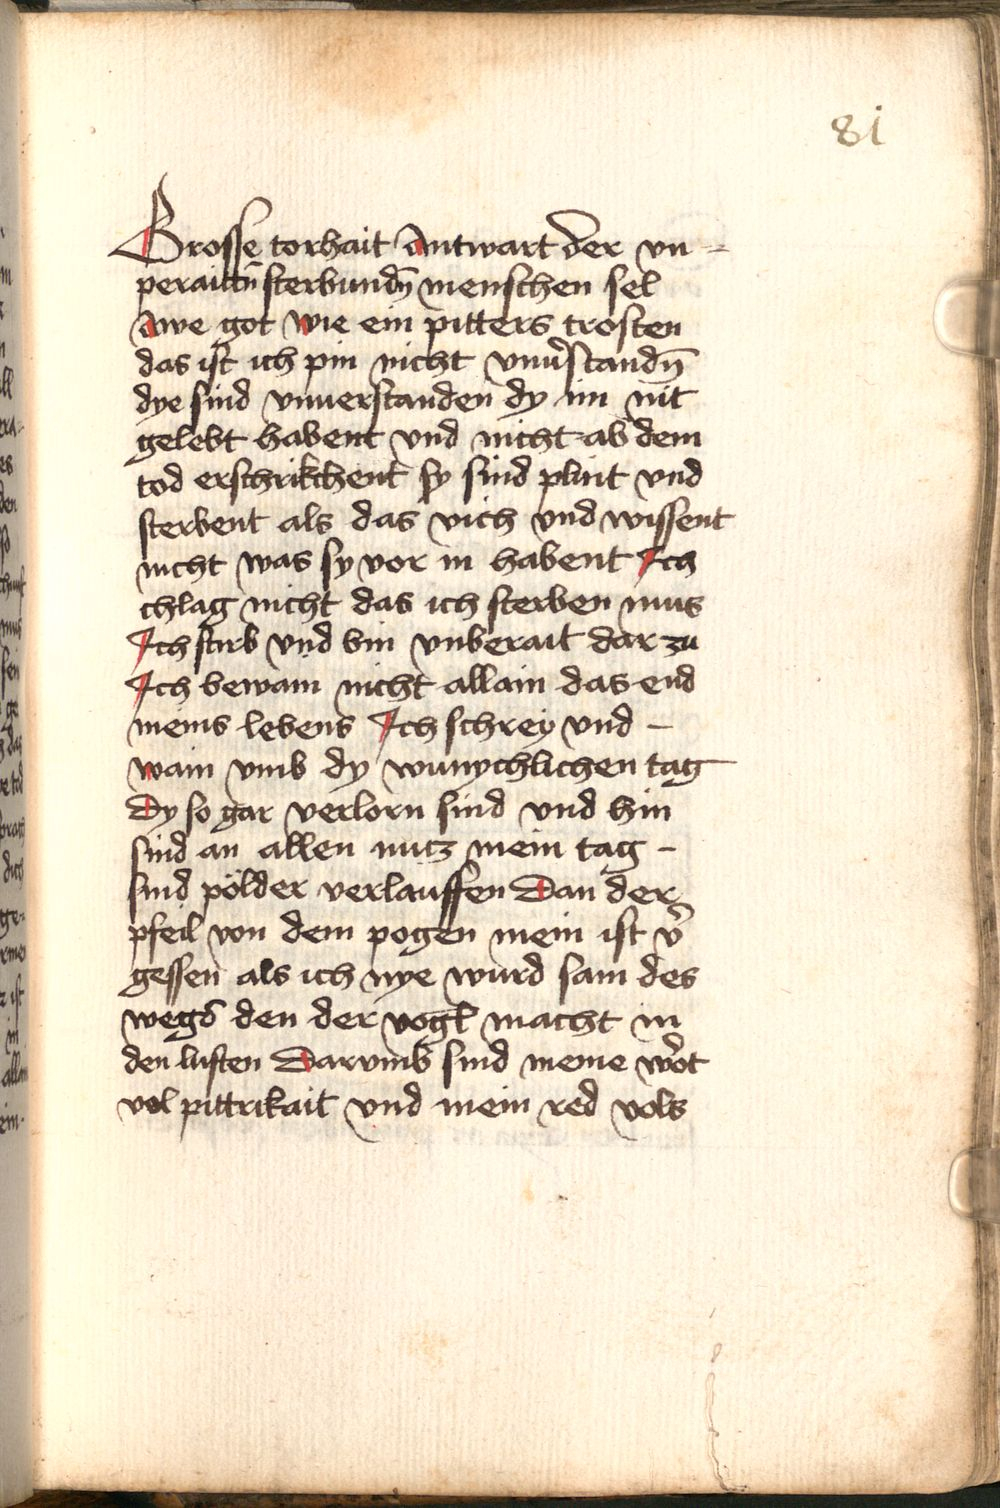 81
Grosse torhait Antwart der vn=
peraittn̄ sterbundn̄ menschen sel
Awe got wie ein pitters trosten
das ist ich pin nicht vnu̓standn̄
dye sind vnuerstanden dy im nit
gelebt habent vnd nicht ab dem
tod erschrikchent sy sind plint vnd
sterbent als das vich vnd wissent
nicht was sy vor in habent Ich
chlag nicht das ich sterben mus
Ich stirb vnd bin vnberait dar zu
Ich bewain nicht allain das end
meins lebens Ich schrey vnd –
wain vmb dy wunychlichen tag
Dy so gar verlorn sind vnd hin
sind an allen nutz mein tag –
sind pölder verlauffen Dan der
pfeil von dem pogen mein ist v̓
gessen als ich nye wurd sam des
wegs den der vogl macht in
den luften Darvmb sind meine wo̓t
vol pittrikait vnd mein red vols